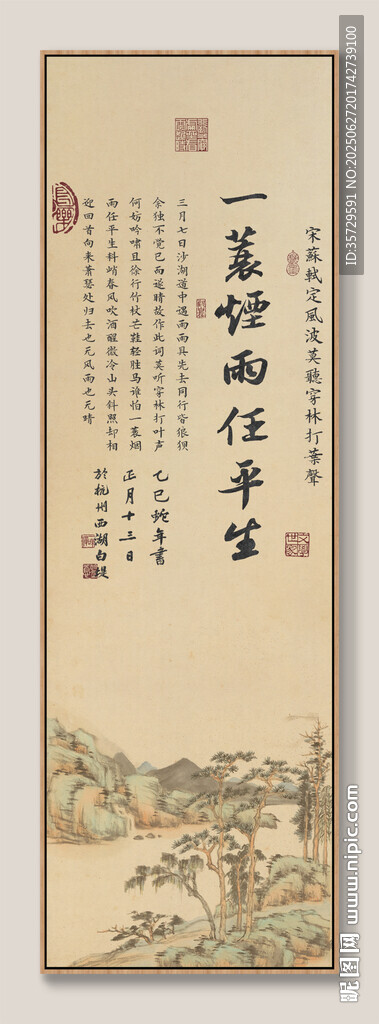 宋蘇軾定風波莫聽穿林打葉聲
一蓑煙雨任平生
三月七日沙湖道中遇雨雨具先去同行皆狼狈
余独不觉已而遂晴故作此词莫听穿林打叶声
何妨吟啸且徐行竹杖芒鞋轻胜马谁怕一蓑烟
雨任平生料峭春风吹酒醒微冷山头斜照却相
迎回首向来萧瑟处归去也无风雨也无晴
乙巳蛇年書
正月十三日
於杭州西湖白堤
ID:35729591 NO:20250627201742739100
昵图网 www.nipic.com